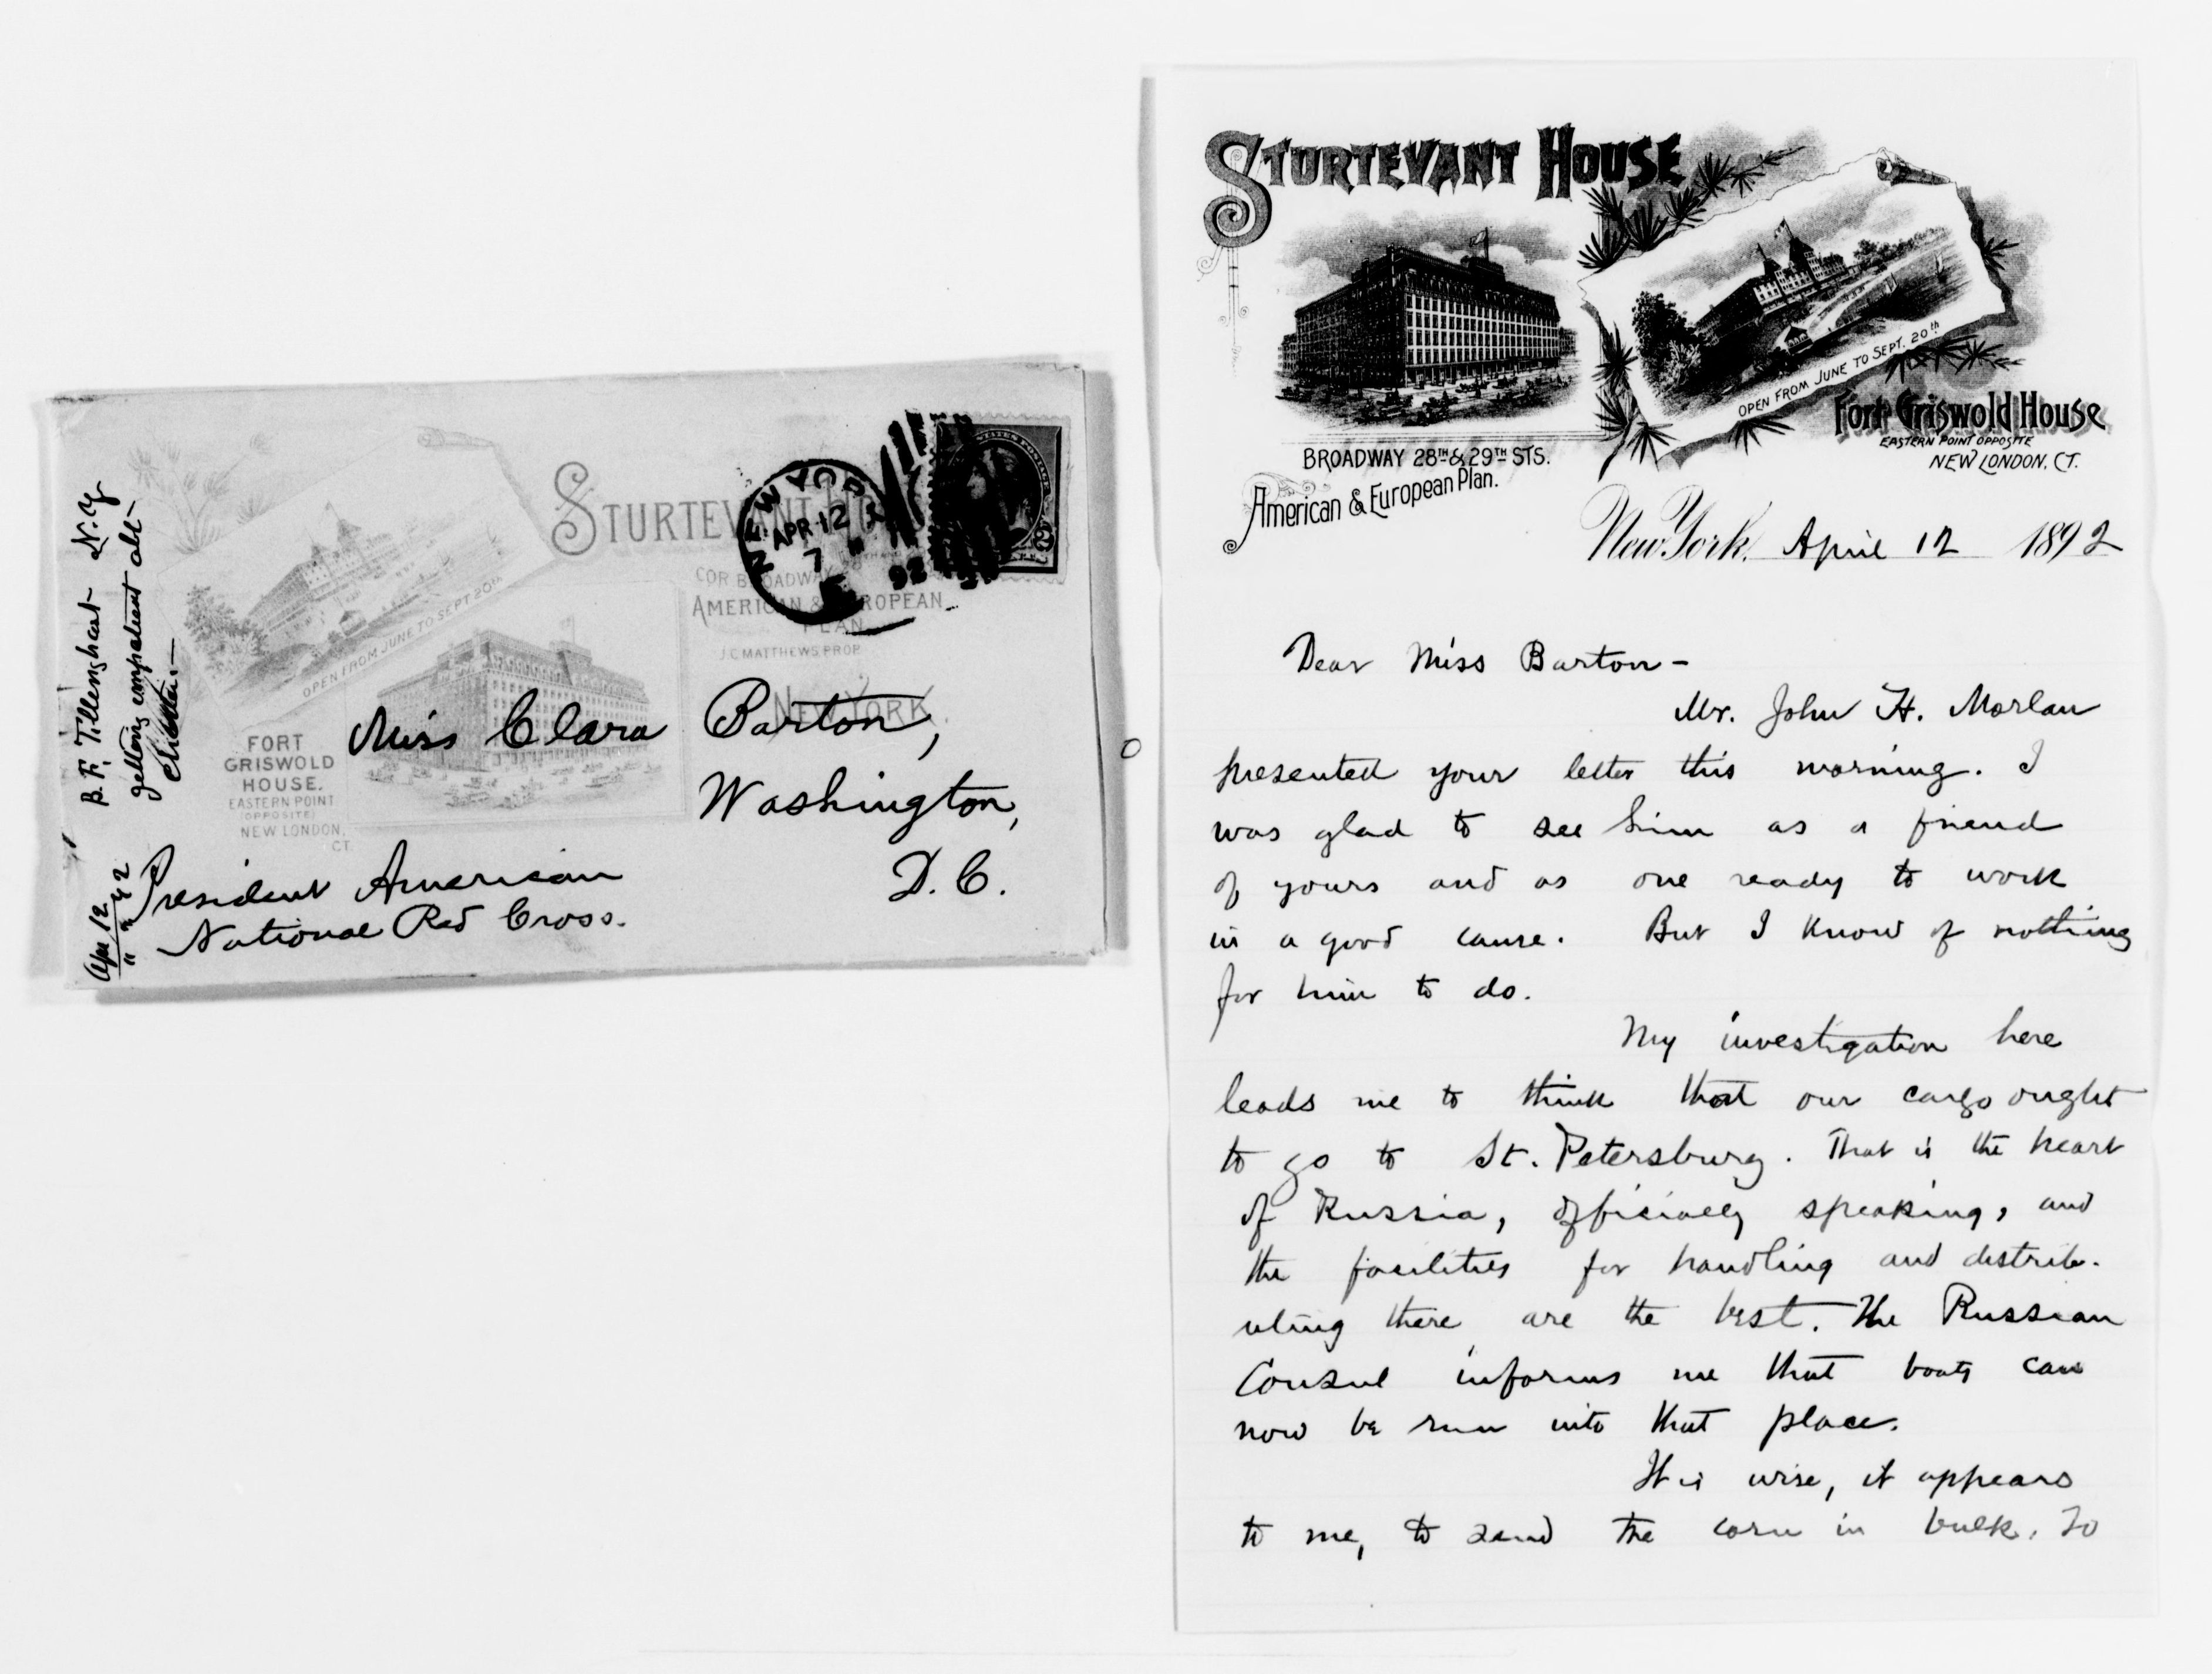 B. F. Tillinghast N.Y
getting impatient abt
Apr 12
" " 92
STURTEVANT HOUSE
COR BROADWAY
AMERICAN & EUROPEAN
PLAN
J.C. MATTHEWS PROP.
NEW YORK.
OPEN FROM JUNE TO SEPT 20TH
FORT
GRISWOLD
HOUSE.
EASTERN POINT
(OPPOSITE)
NEW LONDON,
CT.
NEW YORK
APR 12
7
92
STATES POSTAGE
2
Miss Clara Barton,
Washington,
D. C.
President American
National Red Cross.
STURTEVANT HOUSE
BROADWAY 28TH & 29TH STS.
American & European Plan.
OPEN FROM JUNE TO SEPT. 20th
Fort Griswold House
EASTERN POINT OPPOSITE
NEW LONDON, CT.
New York, April 12 1892
Dear Miss Barton -
Mr. John H. Morlan
presented your letter this morning. I
was glad to see him as a friend
of yours and as one ready to work
in a good cause. But I know of nothing
for him to do.
My investigation here
leads me to think that our cargo ought
to go to St. Petersburg. That is the heart
of Russia, officially speaking, and
the facilities for handling and distrib-
uting there are the best. The Russian
Consul informs me that boats can
now be run into that place.
It is wise, it appears
to me, to send the corn in bulk. To